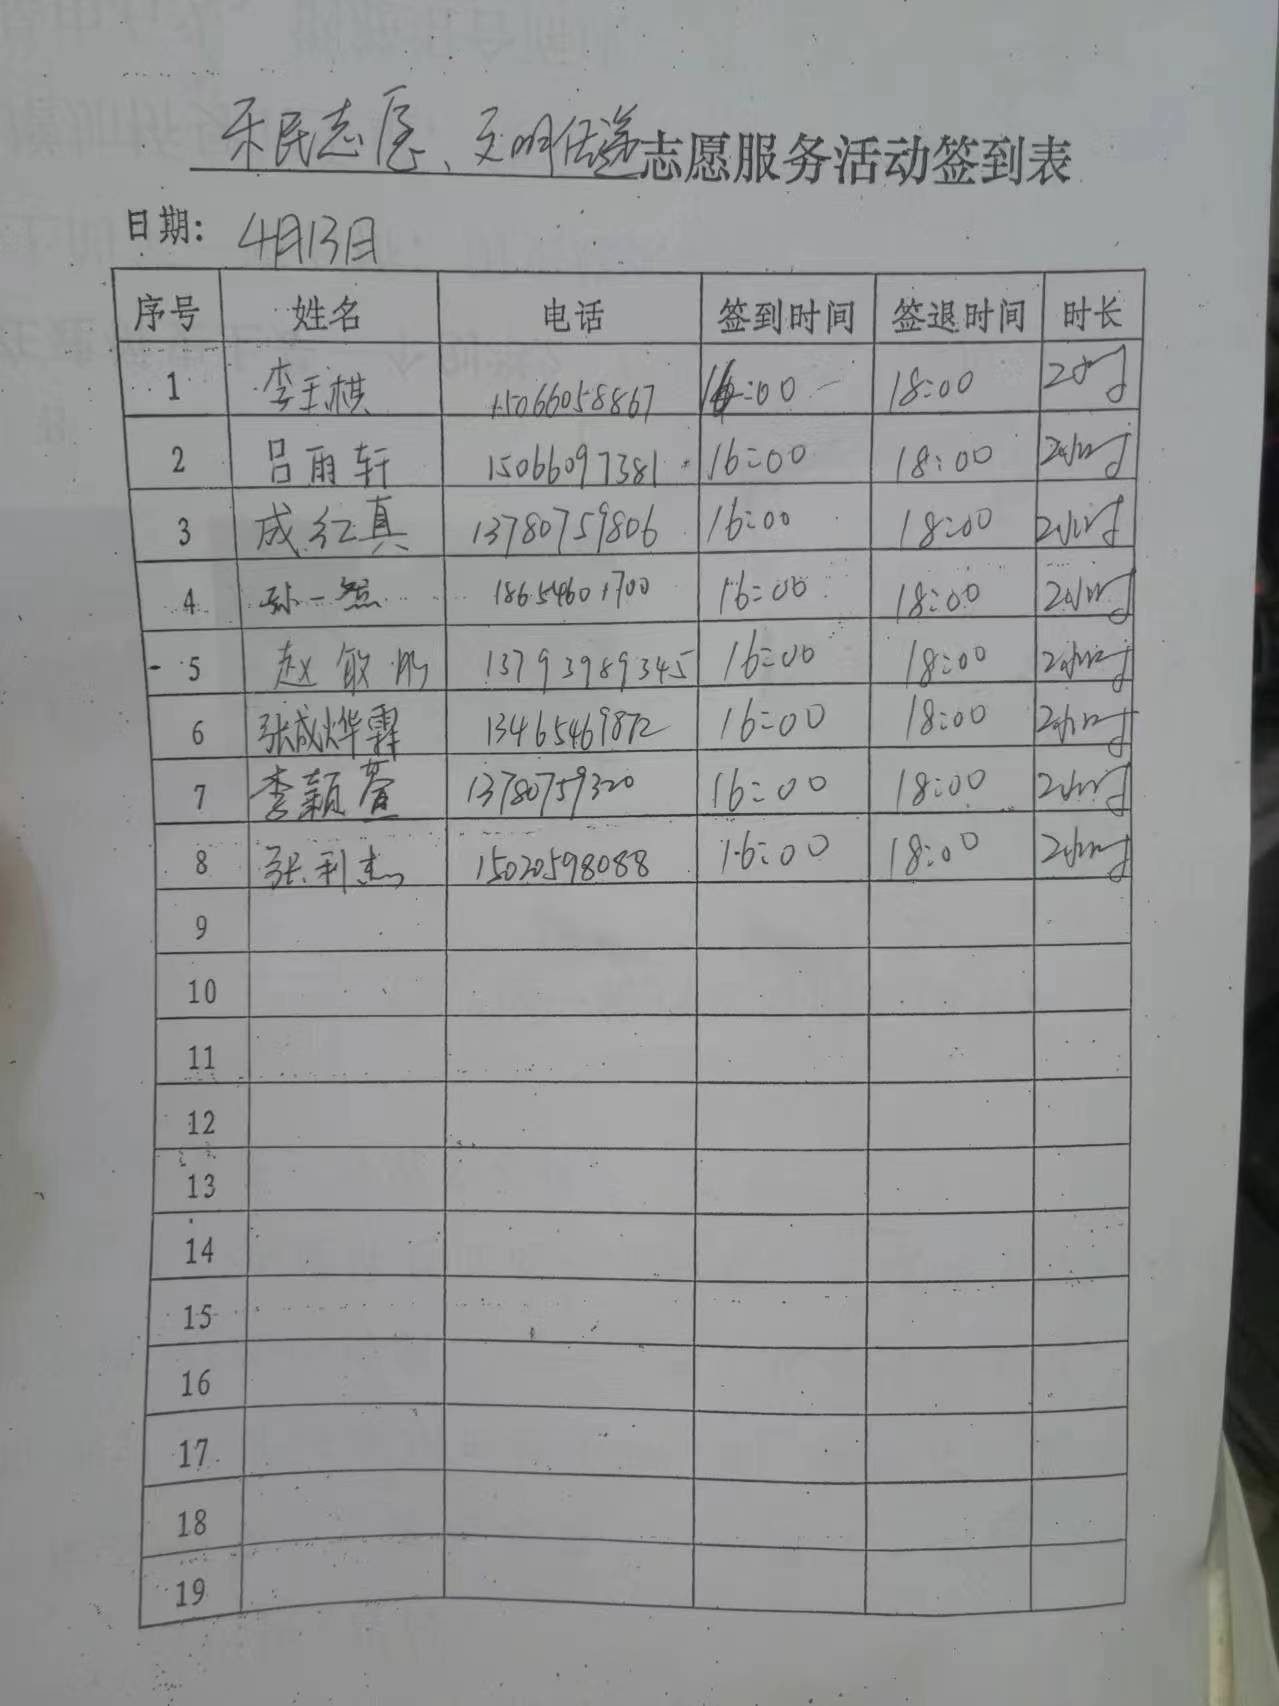 乐民志愿、文明传递志愿服务活动签到表
日期: 4月13日
序号 姓名 电话 签到时间 签退时间 时长
1 李玉棋 15066058867 16:00 18:00 2小时
2 吕雨轩 15066097381 16:00 18:00 2小时
3 成红真 13780759806 16:00 18:00 2小时
4 孙一 18654601700 16:00 18:00 2小时
5 赵敏 13793989345 16:00 18:00 2小时
6 张成烨霖 13465469872 16:00 18:00 2小时
7 李颖萱 13780759320 16:00 18:00 2小时
8 张利杰 15020598088 16:00 18:00 2小时
9
10
11
12
13
14
15
16
17
18
19